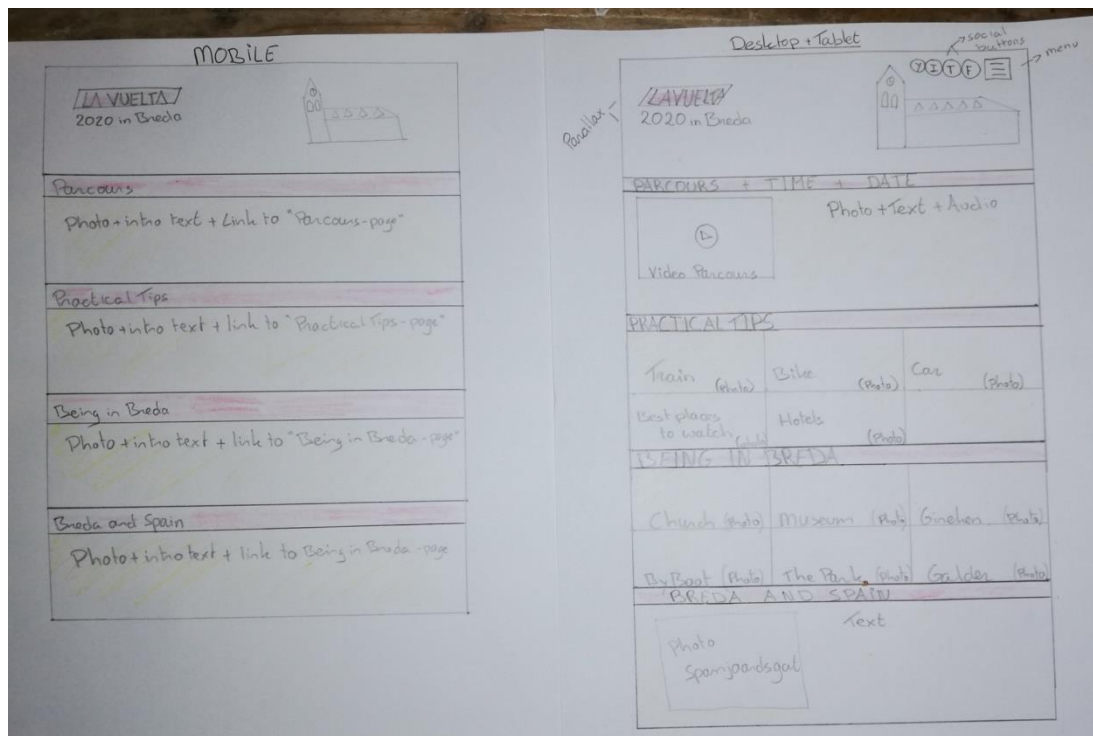 MOBILE
LA VUELTA
2020 in Breda
Parcours
Photo + intro text + Link to "Parcours-page"
Practical Tips
Photo + intro text + link to "Practical Tips-page"
Being in Breda
Photo + intro text + link to "Being in Breda-page"
Breda and Spain
Photo + intro text + link to Being in Breda-page
Desktop + Tablet
social
buttons
menu
Y I T F
Parallax
LAVUELTA
2020 in Breda
PARCOURS + TIME + DATE
Photo + Text + Audio
Video Parcours
PRACTICAL TIPS
Train (Photo) Bike (Photo) Car (Photo)
Best places
to watch (Photo) Hotels (Photo)
BEING IN BREDA
Church (Photo) Museum (Photo) Gineken (Photo)
By Boat (Photo) The Park (Photo) Galder (Photo)
BREDA AND SPAIN
Text
Photo
Spanjaardsgat